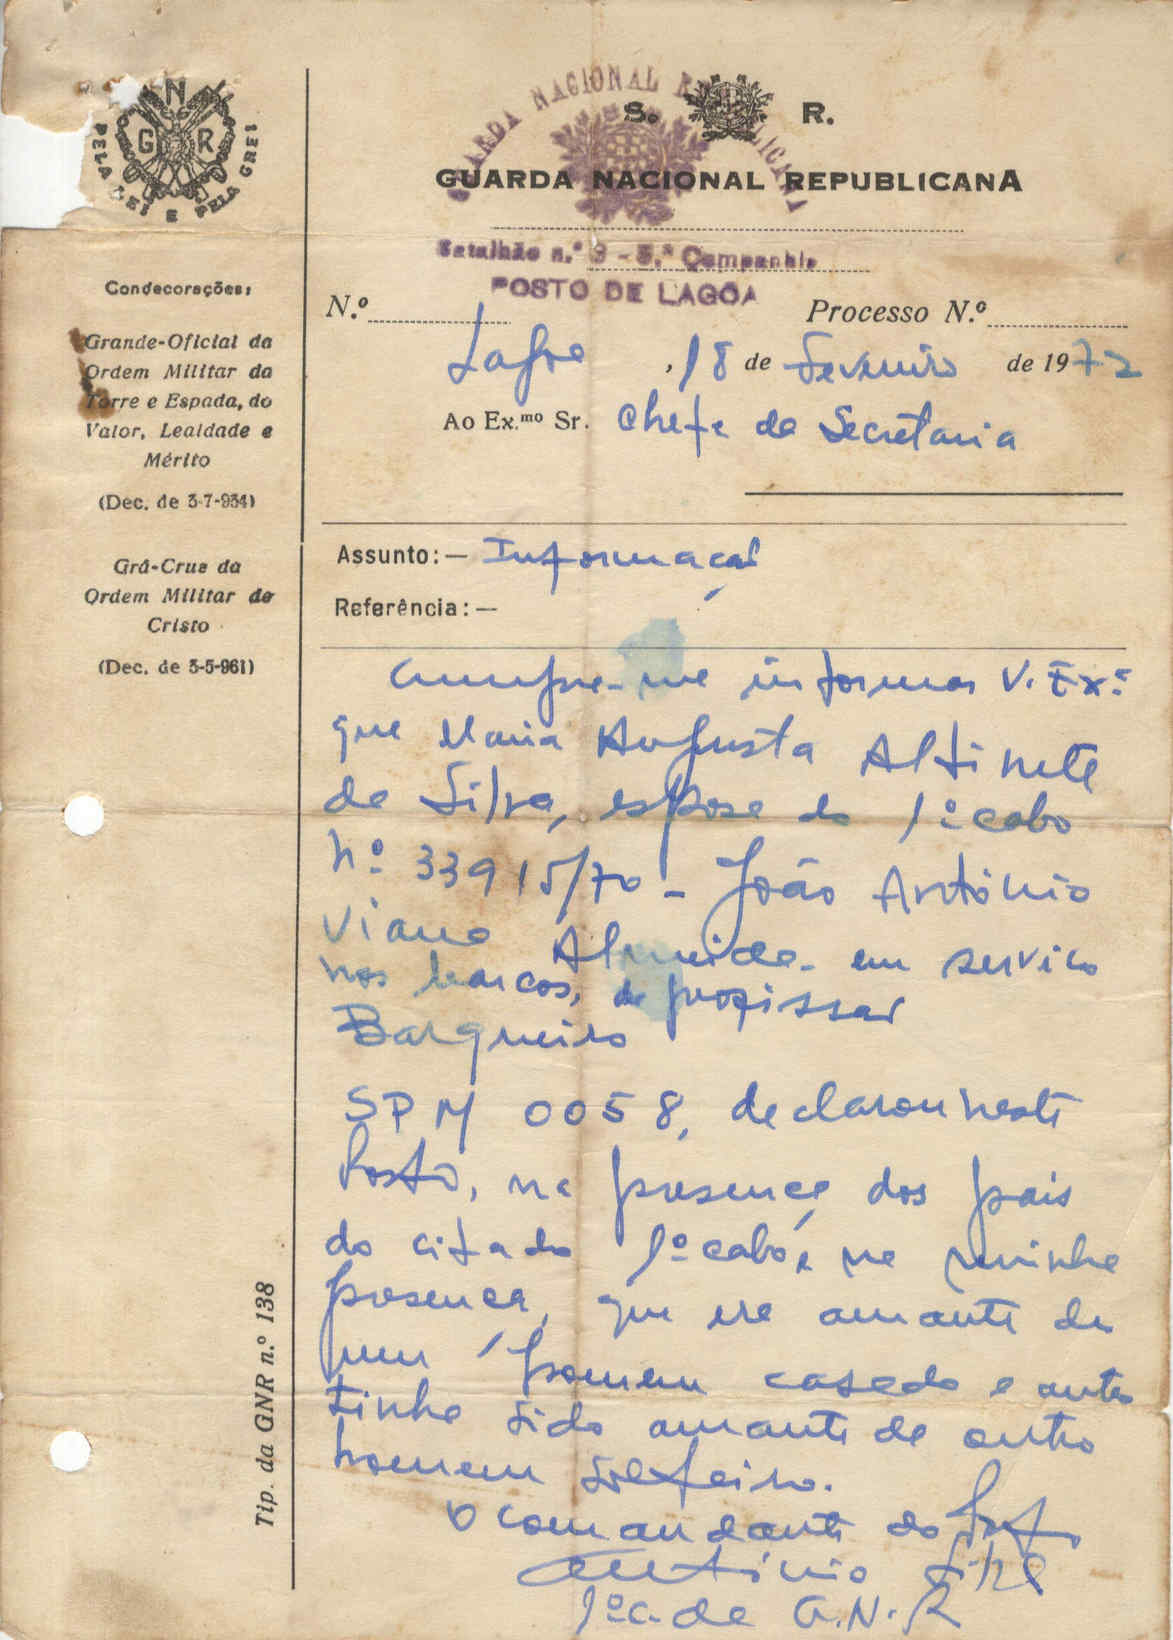 G N R
PELA LEI E PELA GREI
Condecorações:
Grande-Oficial da
Ordem Militar da
Torre e Espada, do
Valor, Lealdade e
Mérito
(Dec. de 3-7-934)
Grã-Cruz da
Ordem Militar de
Cristo
(Dec. de 3-5-961)
Tip. da GNR n.º 138
GUARDA NACIONAL REPUBLICANA
S. R.
GUARDA NACIONAL REPUBLICANA
Batalhão n.º 3 - 5.ª Companhia
POSTO DE LAGÔA
N.º Processo N.º
Lagoa, 18 de Fevereiro de 1972
Ao Ex.mo Sr. Chefe da Secretaria
Assunto: — Informação
Referência: —
Cumpre-me informar V. Exª
que Maria Augusta Alfinete
da Silva, esposa do 1º cabo
nº 33915/70 - João António
Viana Almeida - em serviço
nos barcos, de profissão
Barqueiro
SPM 0058, declarou neste
Posto, na presença dos pais
do citado 1º cabo, na minha
presença, que era amante de
um homem casado e antes
tinha sido amante de outro
homem solteiro.
O comandante do Posto
António Silva
1º c. da G.N.R